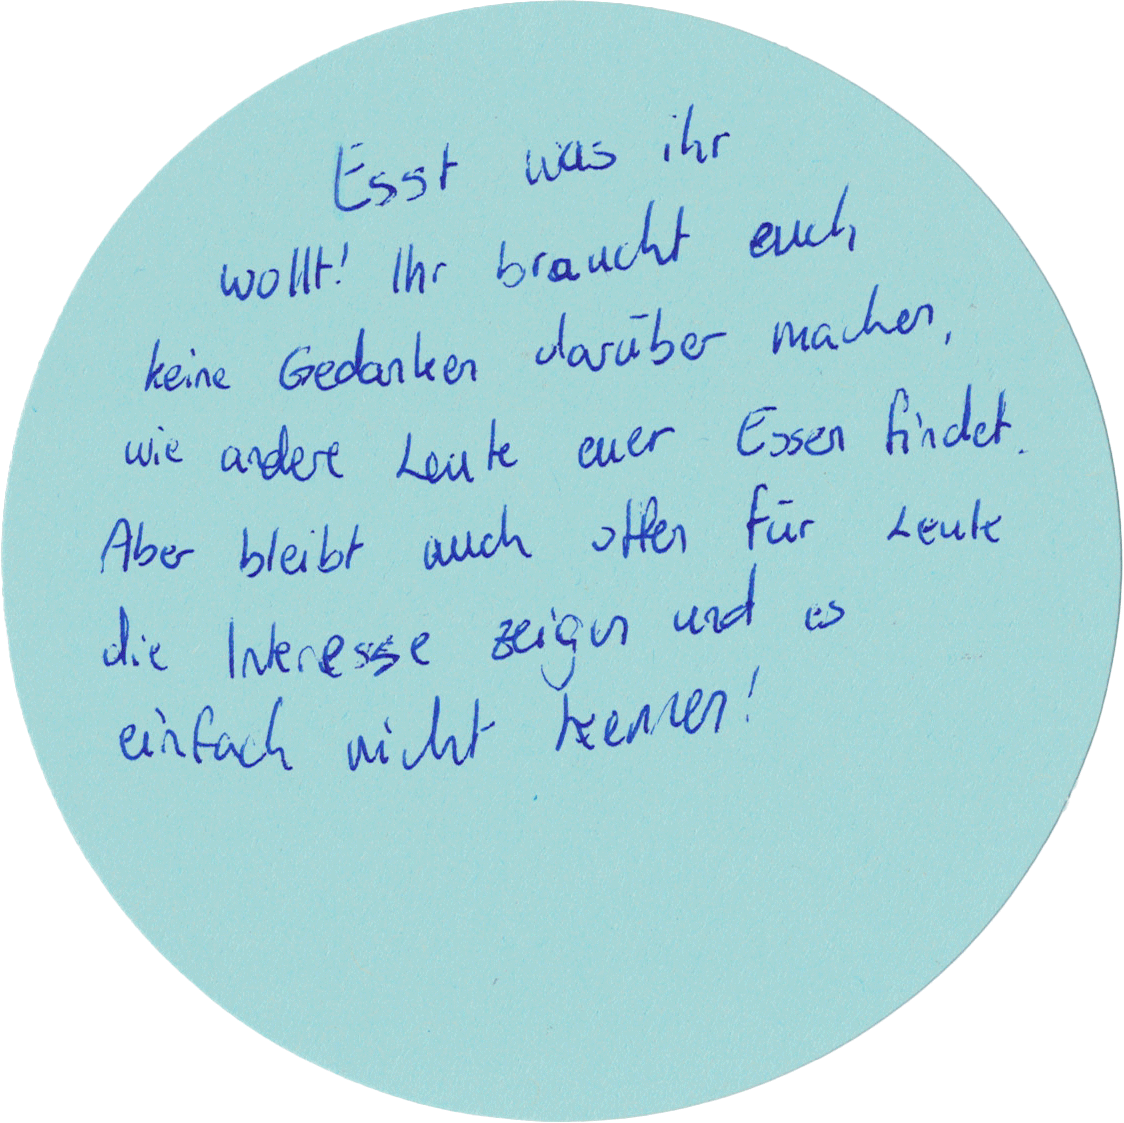 Esst was ihr
wollt! Ihr braucht euch
keine Gedanken darüber machen,
wie andere Leute euer Essen findet.
Aber bleibt auch offen für Leute
die Interesse zeigen und es
einfach nicht kennen!